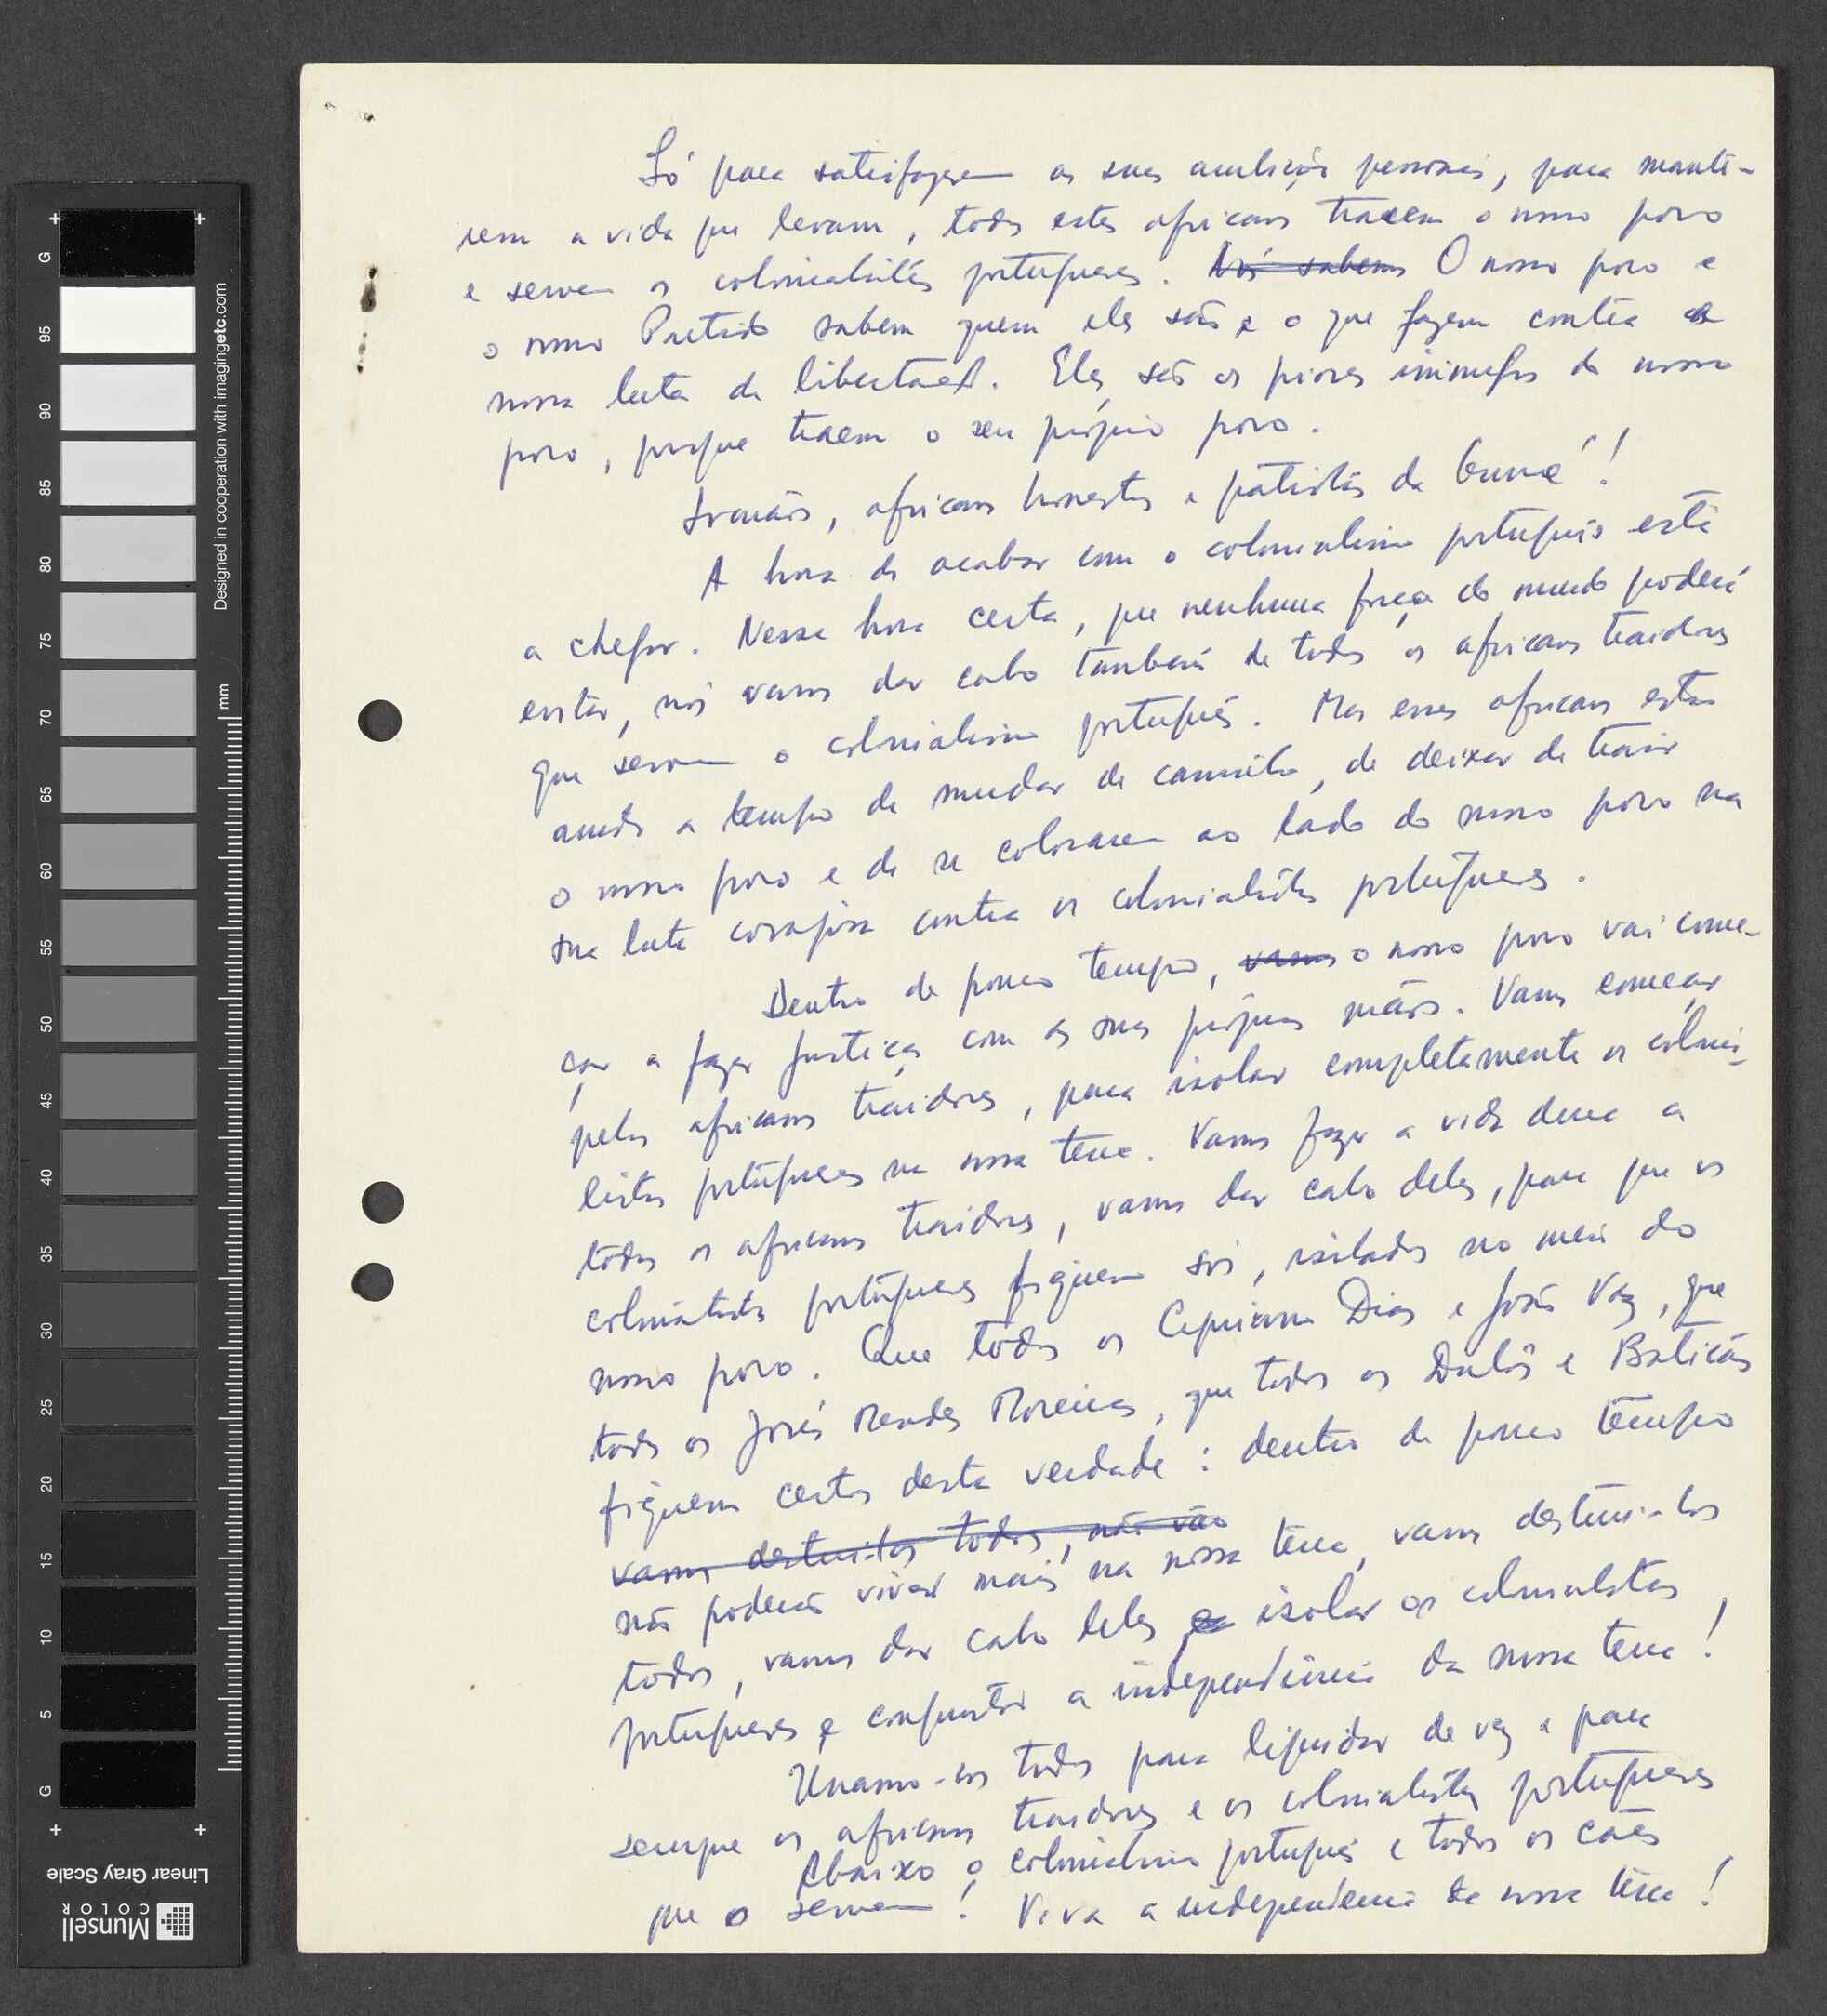 Só para satisfazerem as suas ambições pessoais, para mante-
rem a vida que levam, todos estes africanos traem o nosso povo
e servem os colonialistas portugueses. Nós sabemos O nosso povo e
o nosso Partido sabem quem eles são e o que fazem contra a
nossa luta de libertação. Eles são os piores inimigos do nosso
povo, porque traem o seu próprio povo.
Irmãos, africanos honestos e patriotas da Guiné!
A hora de acabar com o colonialismo português está
a chegar. Nessa hora certa, que nenhuma força do mundo poderá
evitar, nós vamos dar cabo também de todos os africanos traidores
que servem o colonialismo português. Mas esses africanos estão
ainda a tempo de mudar de caminho, de deixar de trair
o nosso povo e de se colocarem ao lado do nosso povo na
sua luta corajosa contra os colonialistas portugueses.
Dentro de pouco tempo, vamos o nosso povo vai come-
çar a fazer justiça com as suas próprias mãos. Vamos começar
pelos africanos traidores, para isolar completamente os colonia-
listas portugueses na nossa terra. Vamos fazer a vida dura a
todos os africanos traidores, vamos dar cabo deles, para que os
colonialistas portugueses fiquem sós, isolados no meio do
nosso povo. Que todos os Cipriano Dias e João Vaz, que
todos os José Mendes Moreiras, que todos os Dulôs e Baticãs
fiquem certos desta verdade: dentro de pouco tempo
vamos destrui-los todos, não vão
não poderão viver mais na nossa terra, vamos destrui-los
todos, vamos dar cabo deles isolar os colonialistas
portugueses e conquistar a independência da nossa terra!
Unamo-nos todos para liquidar de vez e para
sempre os africanos traidores e os colonialistas portugueses
Abaixo o colonialismo português e todos os cães
que o servem! Viva a independencia da nossa terra!
G
95
90
85
80
75
70
65
60
55
50
45
40
35
30
25
20
15
10
5
G
mm
Designed in cooperation with imagingetc.com
Linear Gray Scale
Munsell
COLOR